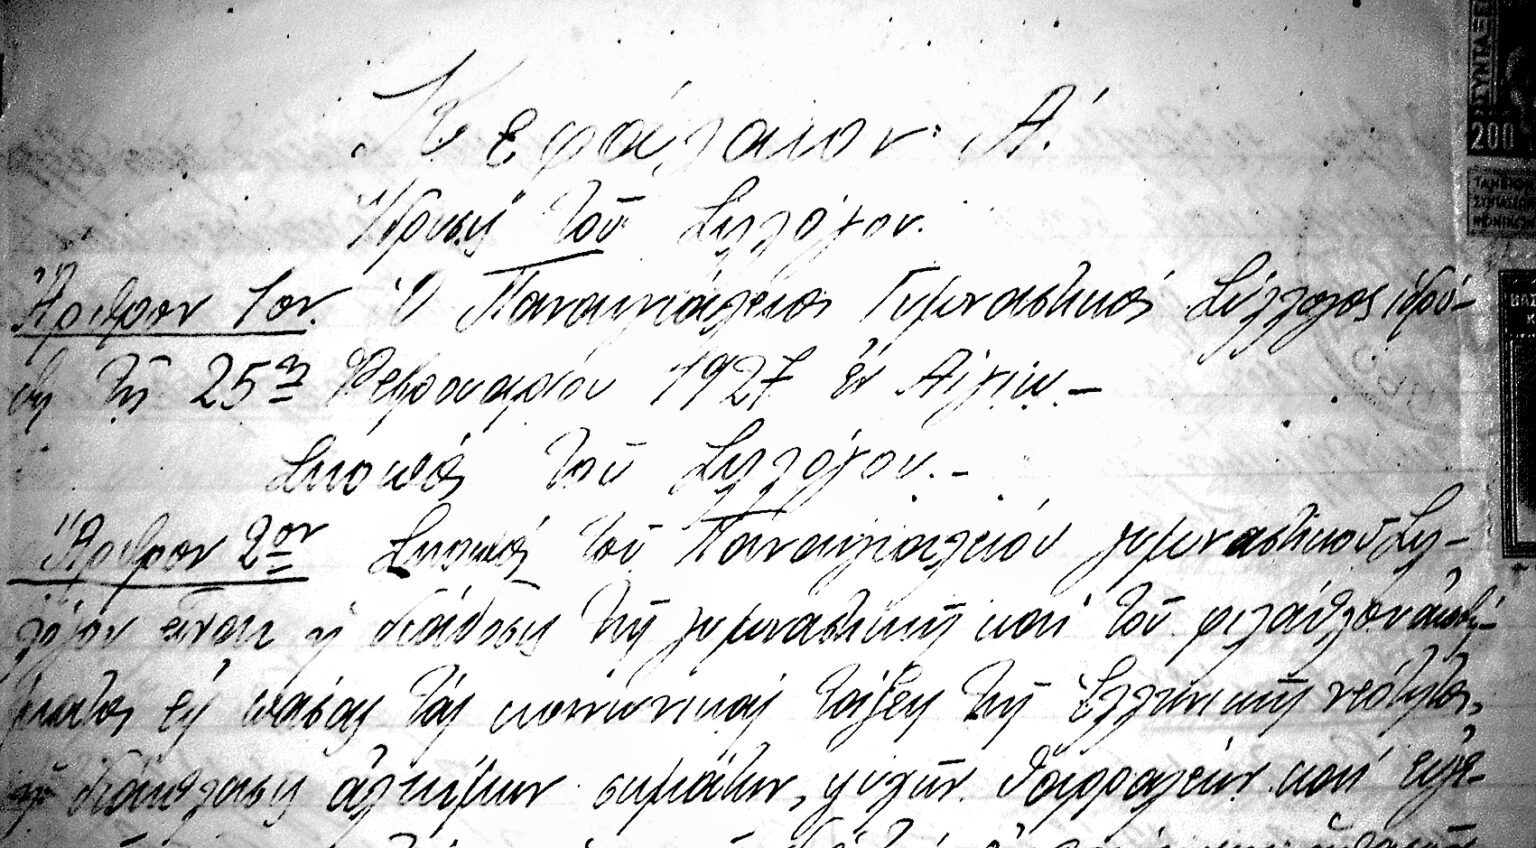 Κεφάλαιον Α!
Ἵδρυσις τοῦ Συλλόγου.
Ἄρθρον 1ον. Ὁ Παναιγιάλειος Γυμναστικός Σύλλογος ἱδρύ-
θη τῇ 25ῃ Φεβρουαρίου 1927 ἐν Αἰγίῳ.-
Σκοπός τοῦ Συλλόγου.-
Ἄρθρον 2ον Σκοπός τοῦ Παναιγιαλείου γυμναστικοῦ Συλ-
λόγου εἶναι ἡ διάδοσις τῆς γυμναστικῆς καί τοῦ φιλάθλου αἰσθή-
ματος εἰς πάσας τάς κοινωνικάς τάξεις τῆς Ἑλληνικῆς νεότητος,
ἡ διάπλασις ἀλκίμων σωμάτων, ψυχῶν θαρραλέων καί εὐγε-
ΣΥΝΤΑΞΕ
200
ΤΑΜΕΙΟ
ΣΥΝΤΑΞΕΩ
ΝΟΜΙΚΩΝ